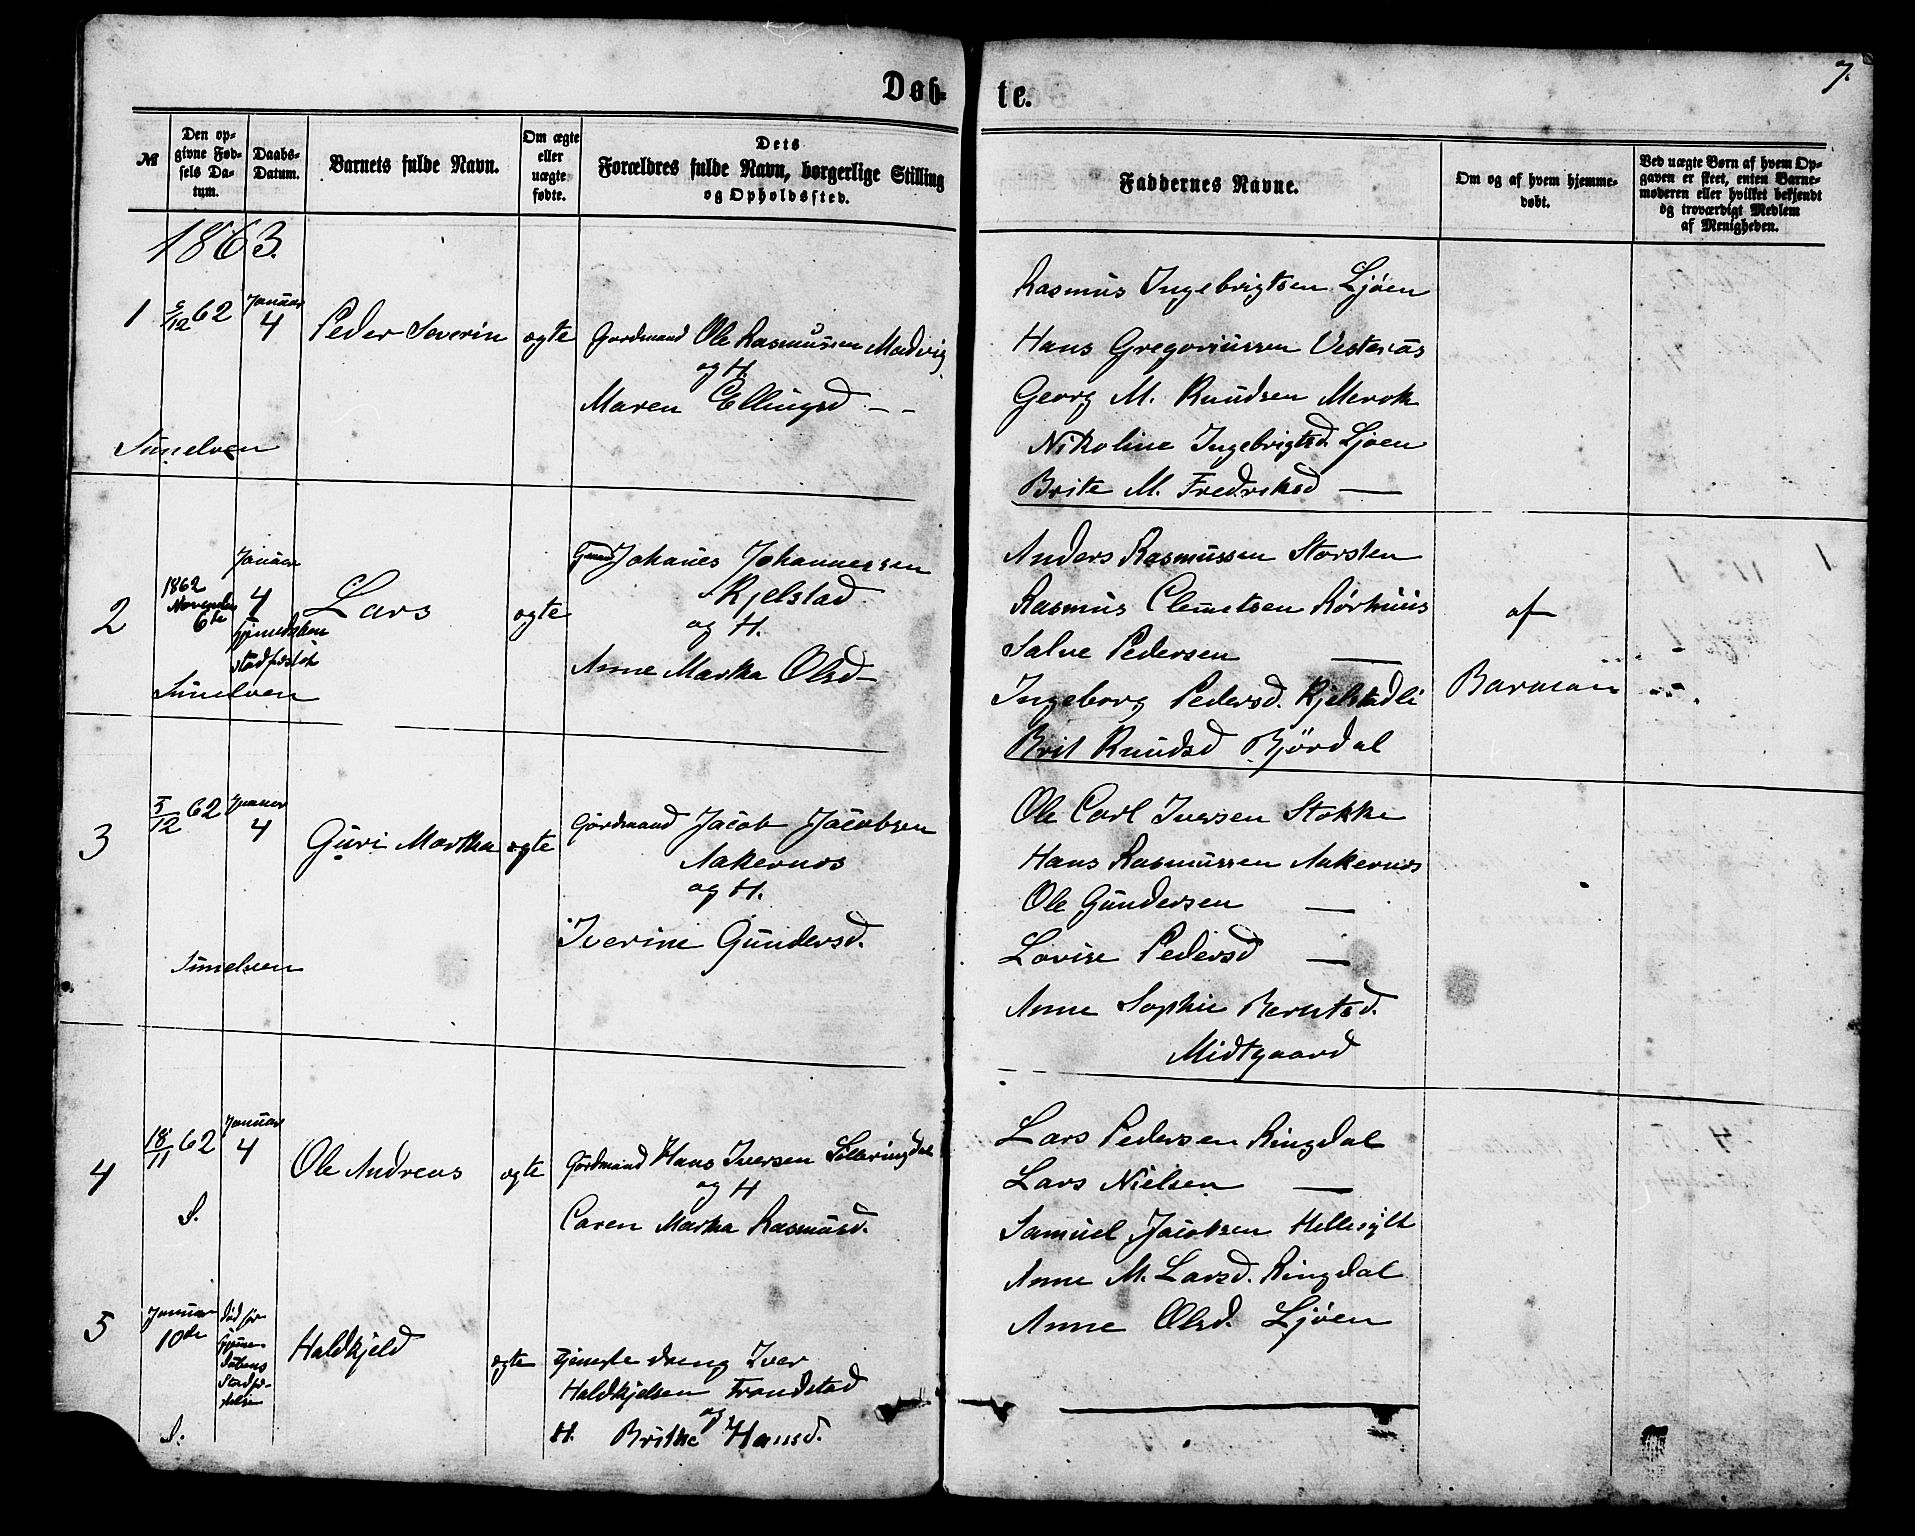 7.
Døb-
te.
№
Den op-
givne Fød-
sels Da-
tum.
Daabs-
Datum.
Barnets fulde Navn.
Om ægte
eller
uægte
fødte.
Dets
Forældres fulde Navn, borgerlige Stilling
og Opholdssted.
Faddernes Navne.
Om og af hvem hjemme-
døbt.
Ved uægte Børn af hvem Op-
gaven er skeet, enten Barne-
moderen eller hvilket bekjendt
og troværdigt Medlem
af Menigheden.
1863.
1
62
Januar
4
Peder Severin
ægte
Gordmand Ole Rasmussen Madvig
og H.
Maren Ellingsd – –
Sunelven
Rasmus Ingebrigtsen Ljøen
Hans Gregoriussen Vesteraas
Georg M. Knudsen Merok
Nikoline Ingebrigtsd. Ljøen
Brite M. Fredriksd —
2
1862
November
6te
Januar
4
Lars
ægte
Johanes Johannessen
Kjelstad
og H.
Anne Martha Olsd –
Sunelven
Anders Rasmussen Storsten
Rasmus Clemetsen Rørhuus
Salve Pedersen —
Ingeborg Pedersd. Kjelstadli
Brit Knudsd Bjørdal
af
Barman
3
5/12 62
Januar
4
Guri Martha
ægte
Gordmand Jacob Jacobsen
Aakernes
og H.
Iverine Gundersd.
Sunelven
Ole Carl Iversen Stokke
Hans Rasmussen Aakernes
Ole Gundersen —
Lovise Pedersd —
Anne Sophie Berntsd.
Midtgaard
4
18/11 62
Januar
4
Ole Andreas
ægte
Gordmand Hans Iversen
og H
Caren Martha Rasmusd.
S.
Lars Pedersen Ringdal
Lars Nielsen —
Samuel Jacobsen Hellesylt
Anne M. Larsd. Ringdal
Anne Olsd. Ljøen
5
Januar
10de
død før
Hjemme-
døbens
Stadfæ-
stelse
Haldkjeld
ægte
Tjeneste dreng Iver
Haldkjelsen Trandstad
og
H. Brithe Hansd.
S.